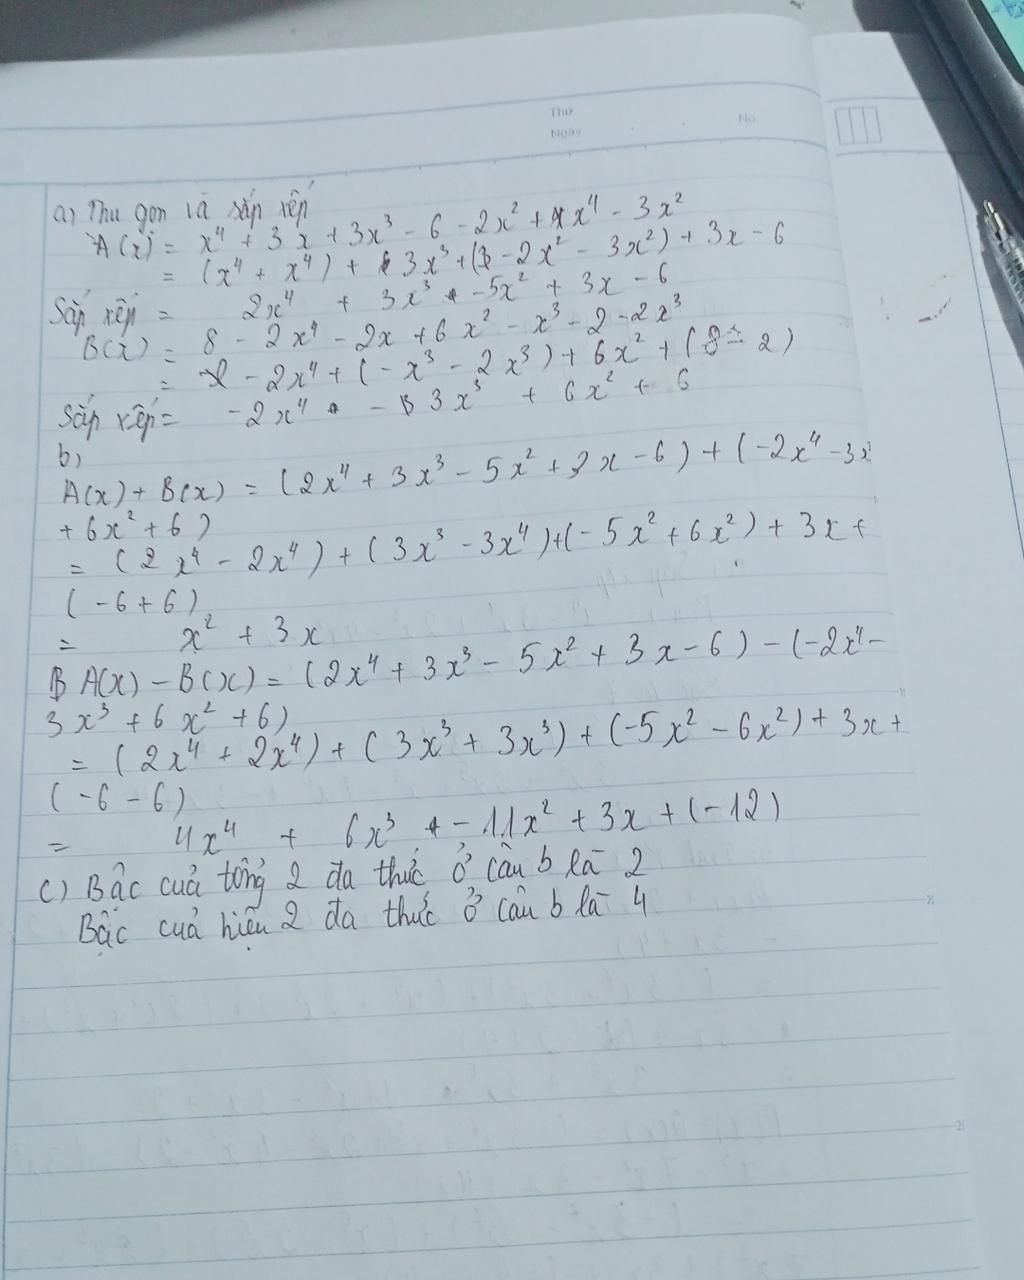 Thứ
Ngày
No.
a) Thu gọn và sắp xếp
A(x) = x⁴ + 3x + 3x³ - 6 - 2x² + x⁴ - 3x²
= (x⁴ + x⁴) + 3x³ + (-2x² - 3x²) + 3x - 6
Sắp xếp = 2x⁴ + 3x³ - 5x² + 3x - 6
B(x) = 8 - 2x⁴ - 2x + 6x² - x³ - 2 - 2x³
= - 2x⁴ + (-x³ - 2x³) + 6x² + (8 - 2)
Sắp xếp = -2x⁴ - 3x³ + 6x² + 6
b)
A(x) + B(x) = (2x⁴ + 3x³ - 5x² + 3x - 6) + (-2x⁴ - 3x
+ 6x² + 6)
= (2x⁴ - 2x⁴) + (3x³ - 3x⁴) + (-5x² + 6x²) + 3x +
(-6 + 6)
= x² + 3x
A(x) - B(x) = (2x⁴ + 3x³ - 5x² + 3x - 6) - (-2x⁴ -
3x³ + 6x² + 6)
= (2x⁴ + 2x⁴) + (3x³ + 3x³) + (-5x² - 6x²) + 3x +
(-6 - 6)
= 4x⁴ + 6x³ - 11x² + 3x + (-12)
c) Bậc cuả tổng 2 đa thức ở câu b là 2
Bậc cuả hiệu 2 đa thức ở câu b là 4